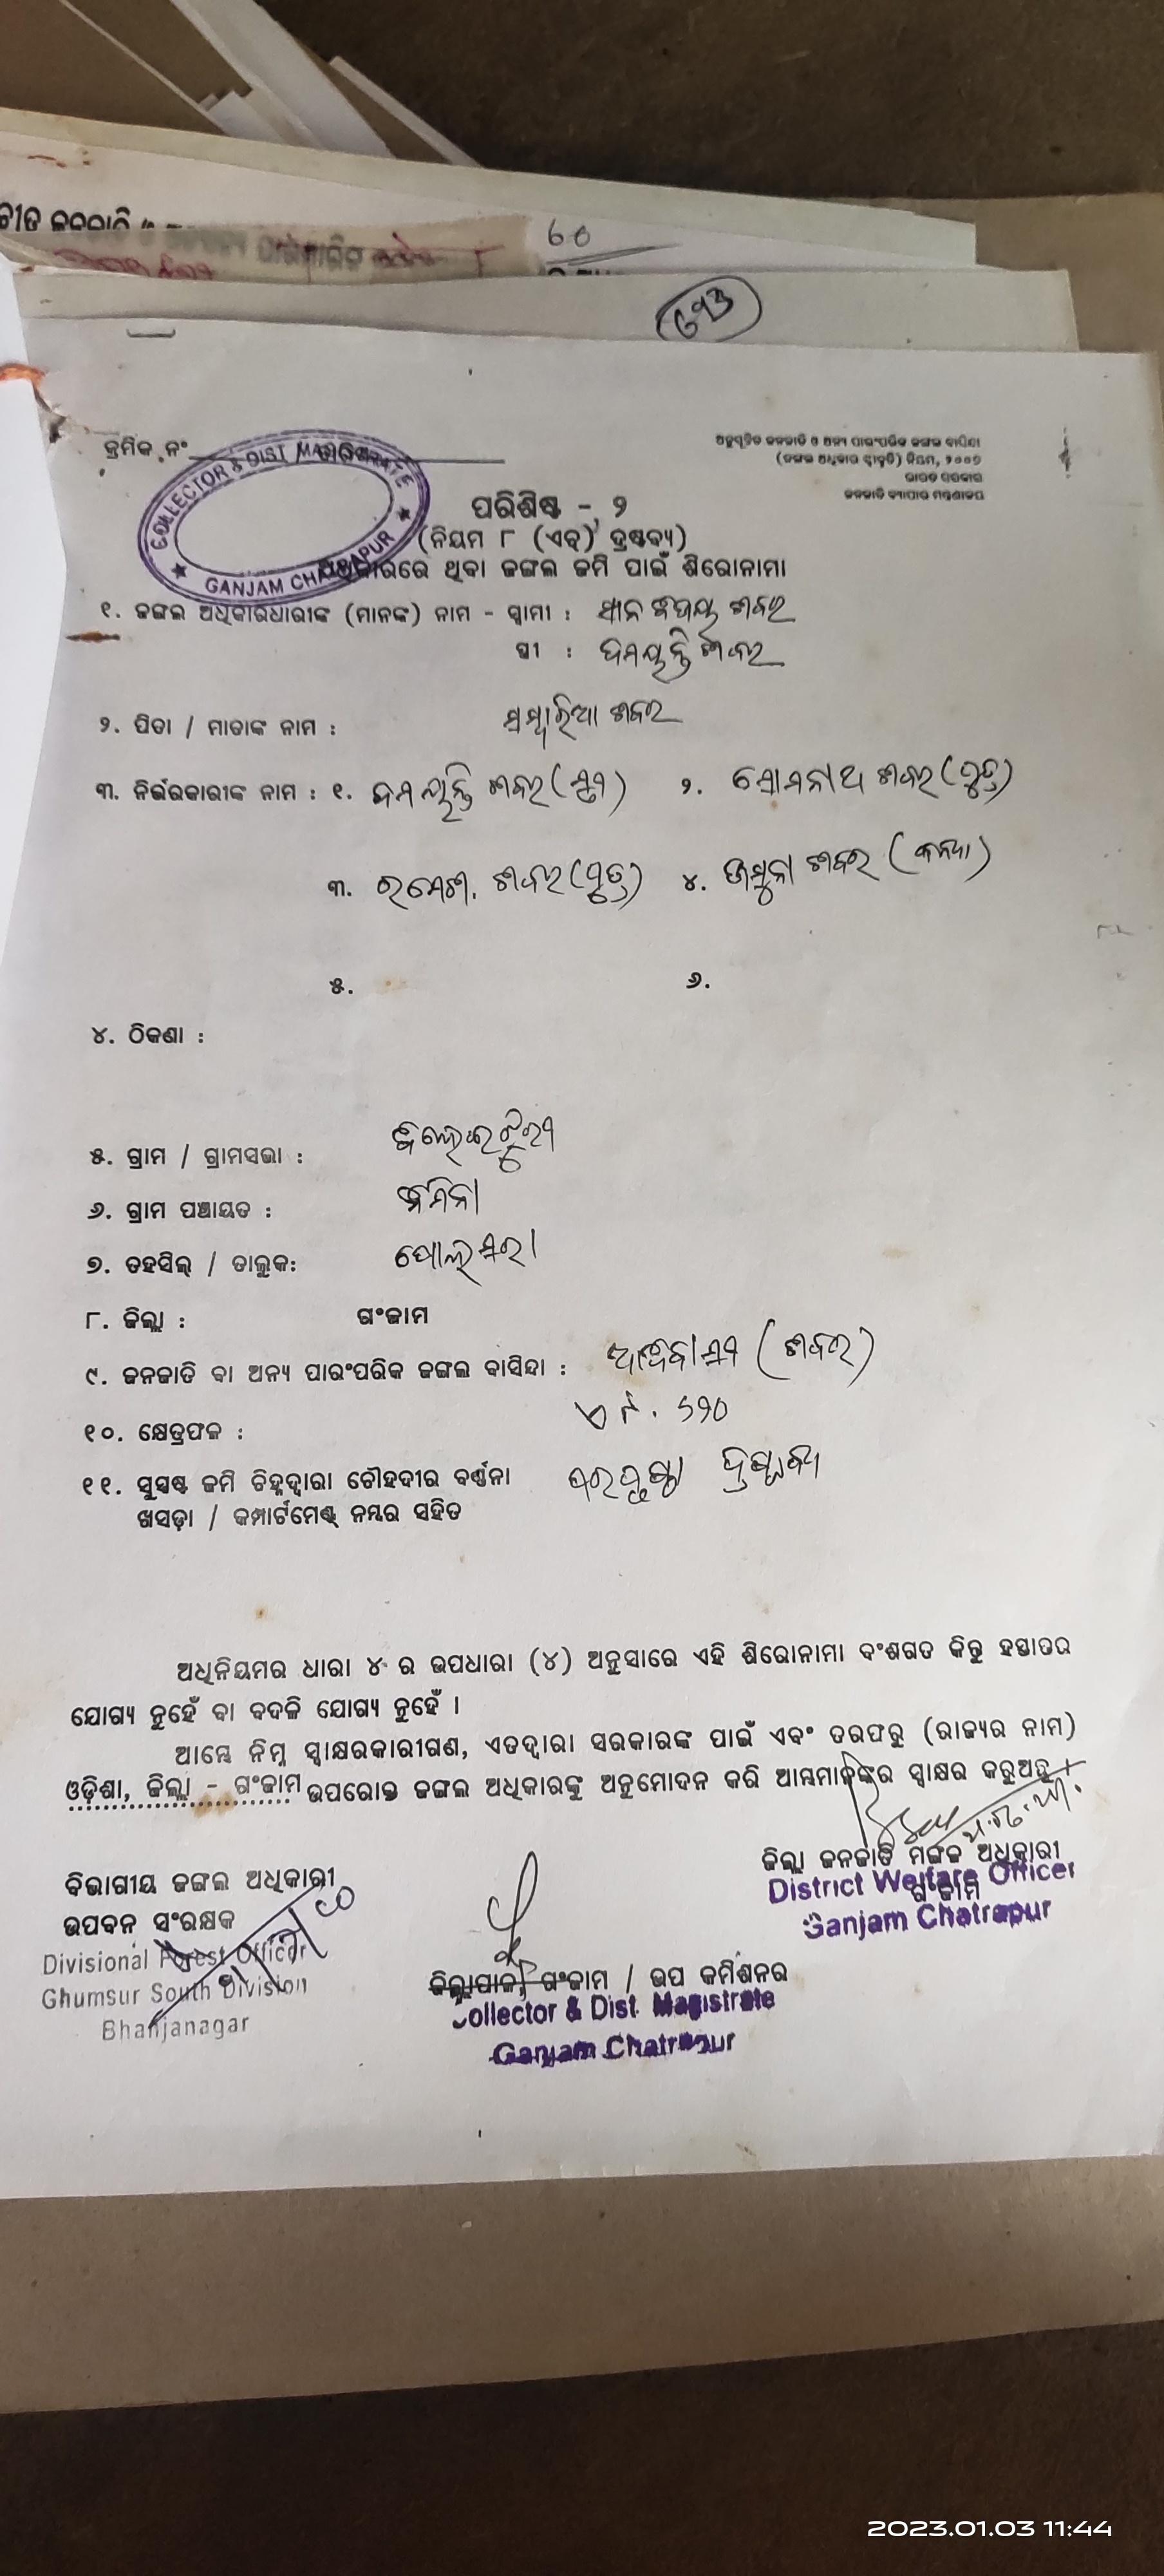 ୬୦
୬୨୩
କ୍ରମିକ ନଂ
COLLECTOR & DIST MAGISTRATE
GANJAM CHATRAPUR
ଅନୁସୂଚିତ ଜନଜାତି ଓ ଅନ୍ୟ ପାରଂପରିକ ଜଙ୍ଗଲ ବାସିନ୍ଦା
(ଜଙ୍ଗଲ ଅଧିକାର ସ୍ୱୀକୃତି) ନିୟମ, ୨୦୦୭
ଭାରତ ସରକାର
ଜନଜାତି ବ୍ୟାପାର ମନ୍ତ୍ରଣାଳୟ
ପରିଶିଷ୍ଟ - ୨
(ନିୟମ ୮ (ଏଚ୍) ଦ୍ରଷ୍ଟବ୍ୟ)
ଅଧିକାରରେ ଥିବା ଜଙ୍ଗଲ ଜମି ପାଇଁ ଶିରୋନାମା
୧. ଜଙ୍ଗଲ ଅଧିକାରଧାରୀଙ୍କ (ମାନଙ୍କ) ନାମ - ସ୍ୱାମୀ : ଶବର
ସ୍ତ୍ରୀ : ଦମୟନ୍ତି ଶବର
୨. ପିତା / ମାତାଙ୍କ ନାମ : ଶବର
୩. ନିର୍ଭରକାରୀଙ୍କ ନାମ : ୧. ଦମୟନ୍ତି ଶବର (ସ୍ତ୍ରୀ) ୨. ସୋମନାଥ ଶବର (ପୁତ୍ର)
୩. ରମେଶ ଶବର (ପୁତ୍ର) ୪. ଯମୁନା ଶବର (କନ୍ୟା)
୫. ୬.
୪. ଠିକଣା :
୫. ଗ୍ରାମ / ଗ୍ରାମସଭା :
୬. ଗ୍ରାମ ପଞ୍ଚାୟତ :
୭. ତହସିଲ୍ / ତାଲୁକ: ପୋଲସରା
୮. ଜିଲ୍ଲା : ଗଂଜାମ
୯. ଜନଜାତି ବା ଅନ୍ୟ ପାରଂପରିକ ଜଙ୍ଗଲ ବାସିନ୍ଦା : ଆଦିବାସୀ (ଶବର)
୧୦. କ୍ଷେତ୍ରଫଳ :
୧୧. ସୁସ୍ପଷ୍ଟ ଜମି ଚିହ୍ନଦ୍ୱାରା ଚୌହଦୀର ବର୍ଣ୍ଣନା ପରପୃଷ୍ଠା ଦ୍ରଷ୍ଟବ୍ୟ
ଖସଡ଼ା / କମ୍ପାର୍ଟମେଣ୍ଟ୍ ନମ୍ବର ସହିତ
ଅଧିନିୟମର ଧାରା ୪ ର ଉପଧାରା (୪) ଅନୁସାରେ ଏହି ଶିରୋନାମା ବଂଶଗତ କିନ୍ତୁ ହସ୍ତାତର
ଯୋଗ୍ୟ ନୁହେଁ ବା ବଦଳି ଯୋଗ୍ୟ ନୁହେଁ ।
ଆମ୍ଭେ ନିମ୍ନ ସ୍ୱାକ୍ଷରକାରୀଗଣ, ଏତଦ୍ୱାରା ସରକାରଙ୍କ ପାଇଁ ଏବଂ ତରଫରୁ (ରାଜ୍ୟର ନାମ)
ଓଡ଼ିଶା, ଜିଲ୍ଲା - ଗଂଜାମ ଉପରୋକ୍ତ ଜଙ୍ଗଲ ଅଧିକାରଙ୍କୁ ଅନୁମୋଦନ କରି ଆମ୍ଭମାନଙ୍କର ସ୍ୱାକ୍ଷର କରୁଅଛୁ ।
ଜିଲ୍ଲା ଜନଜାତି ମଙ୍ଗଳ ଅଧିକାରୀ
ଗଂଜାମ
District Welfare Officer
Ganjam Chatrapur
ବିଭାଗୀୟ ଜଙ୍ଗଲ ଅଧିକାରୀ
ଉପବନ ସଂରକ୍ଷକ
Divisional Forest Officer
Ghumsur South Division
Bhanjanagar
ଜିଲ୍ଲାପାଳ, ଗଂଜାମ / ଉପ କମିଶନର
Collector & Dist. Magistrate
Ganjam Chatrapur
2023.01.03 11:44